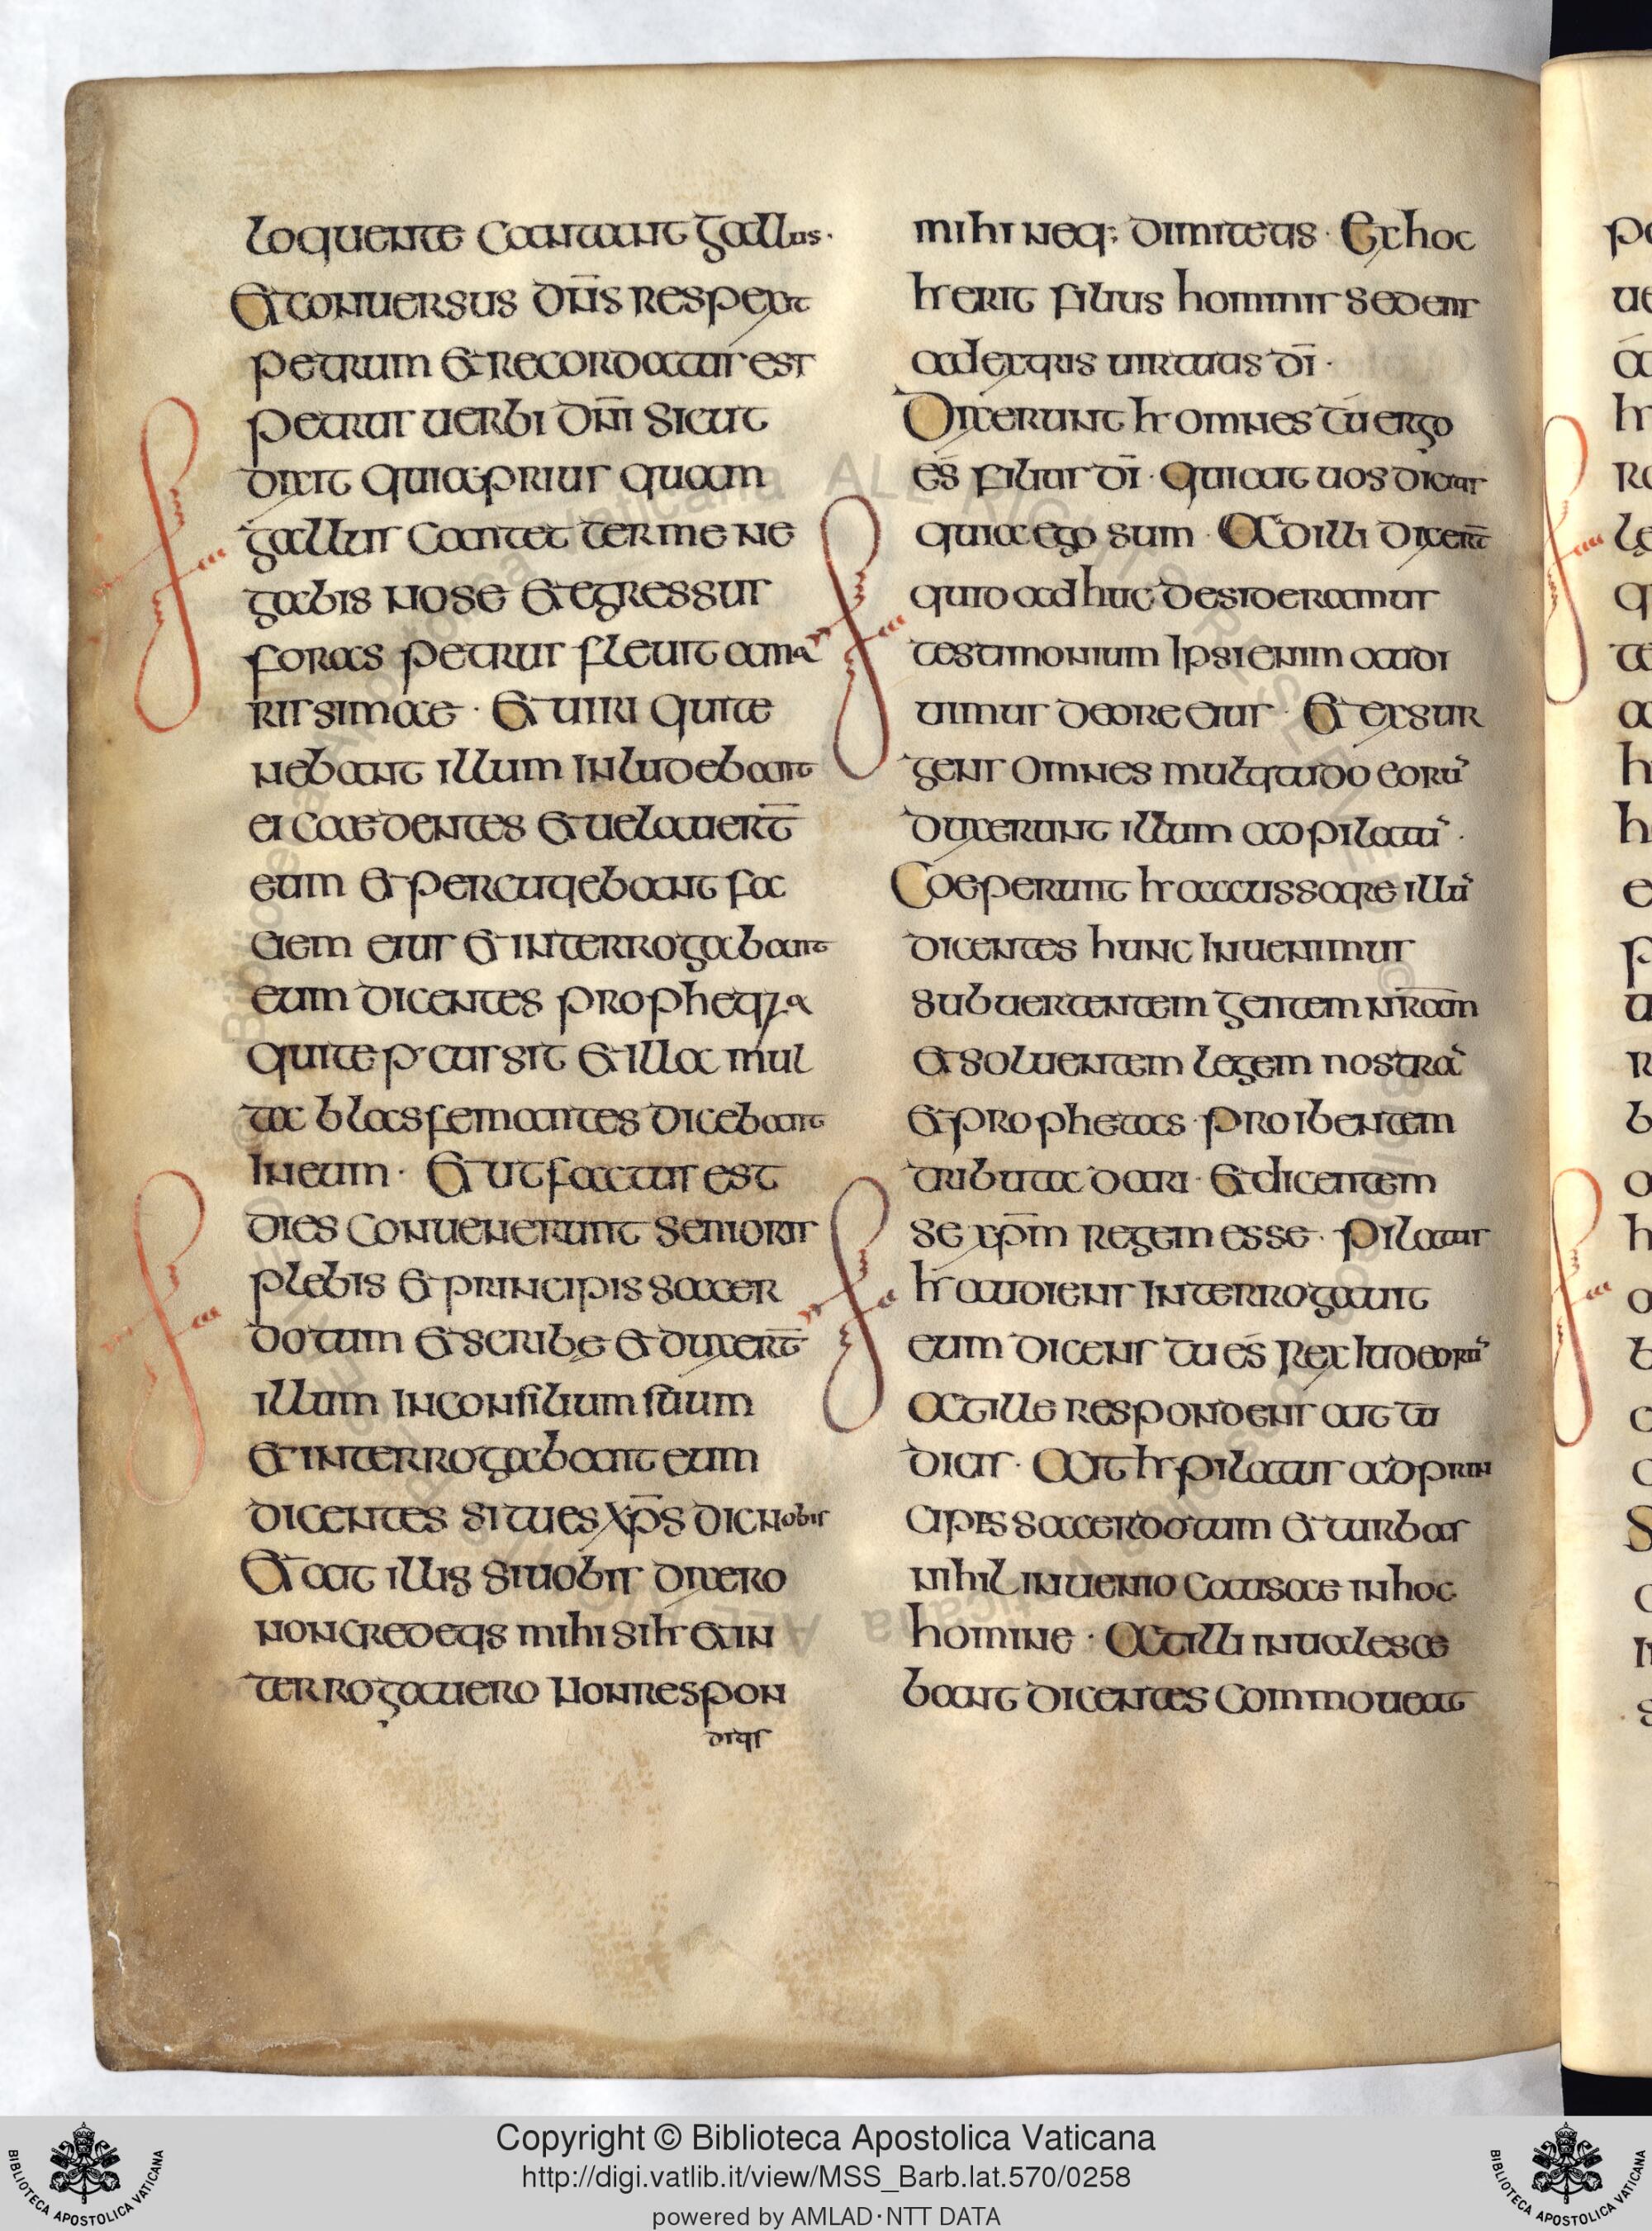 loquente cantauit gallus·
Et conuersus dn̄s respexit
petrum et recordatus est
petrus uerbi dn̄i sicut
dixit quia prius quam
gallus cantet ter me ne
gabis nose et egressus
foras petrus fleuit ama
rissimae · Et uiri qui te
nebant illum inludebant
ei caedentes et uelauert̄
eum et percutiebant fa
ciem eius et interrogabant
eum dicentes prophetiza
qui te p̱cussit et illa mul
ta blasfemantes dicebant
in eum · Et ut factus est
dies conuenerunt senioris
plebis et principis sacer
dotum et scribę et duxert̄
illum in consilium suum
et interrogabant eum
dicentes si tu es xp̄s dic nobis
Et ait illis si uobis dixero
non creditis mihi si ħ et in
terrogauero non respon
ditis
mihi neq; dimitetis · Ex hoc
ħ erit filius hominis sedens
a dextris uirtutis dī ·
Dixerunt ħ omnes tú ergo
és filius dī · Qui ait uos dicitis
quia ego sum · Ad illi dixert̄
quid adhuc desideramus
testimonium Ipsi enim audi
uimus de ore eius · Et exsur
gens omnes multitudo eorū
duxerunt illum ad pilatū ·
Coeperunt ħ accussare illū
dicentes hunc Inuenimus
subuertentem gentem nr̄am
et soluentem legem nostrā
et prophetas · proibentem
tributa dari · et dicentem
se xp̄m regem esse · pilatus
ħ audiens Interrogauit
eum dicens tu és Rex Iudeorū
At ille respondens ait tú
dicis · Ait ħ pilatus ad prin
cipis sacerdotum et turbas
nihil inuenio causae in hoc
homine · At illi inualesce
bant dicentes commoueat
Copyright © Biblioteca Apostolica Vaticana
http://digi.vatlib.it/view/MSS_Barb.lat.570/0258
powered by AMLAD·NTT DATA
BIBLIOTECA APOSTOLICA VATICANA
BIBLIOTECA APOSTOLICA VATICANA